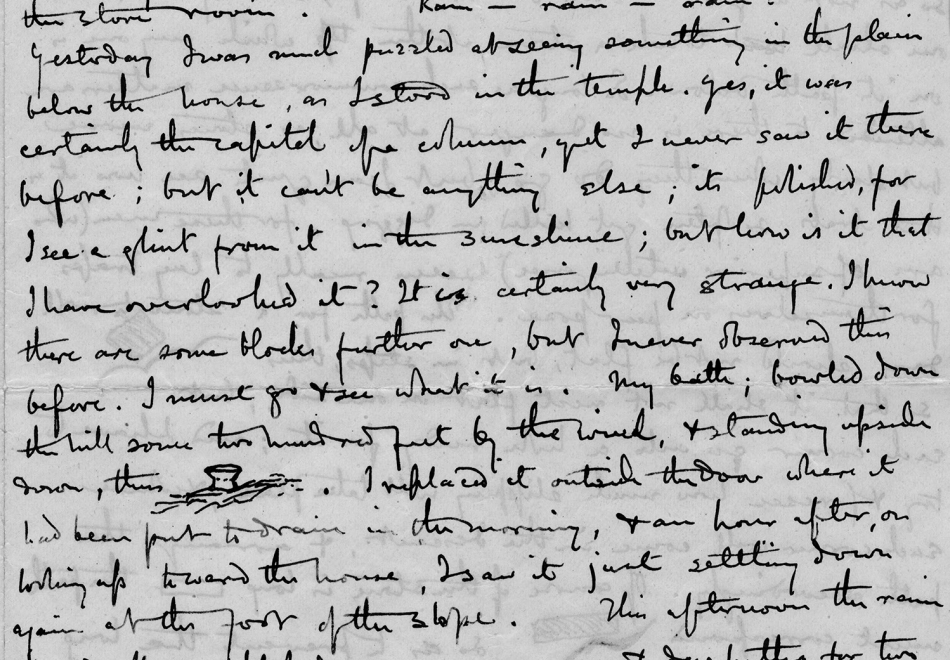 the store room. Rain — rain — rain.
Yesterday I was much puzzled at seeing something in the plain
below the house, as I stood in the temple. Yes, it was
certainly the capital of a column, yet I never saw it there
before; but it can't be anything else; its polished, for
I see a glint from it in the sunshine; but how is it that
I have overlooked it? It is certainly very strange. I know
there are some blocks further on, but I never observed this
before. I must go & see what it is. My bath; bowled down
the hill some two hundred feet by the wind, & standing upside
down, thus . I replaced it outside the door where it
had been put to drain in the morning, & an hour after, on
looking up toward the house, I saw it just settling down
again at the foot of the slope. This afternoon the rain
for two